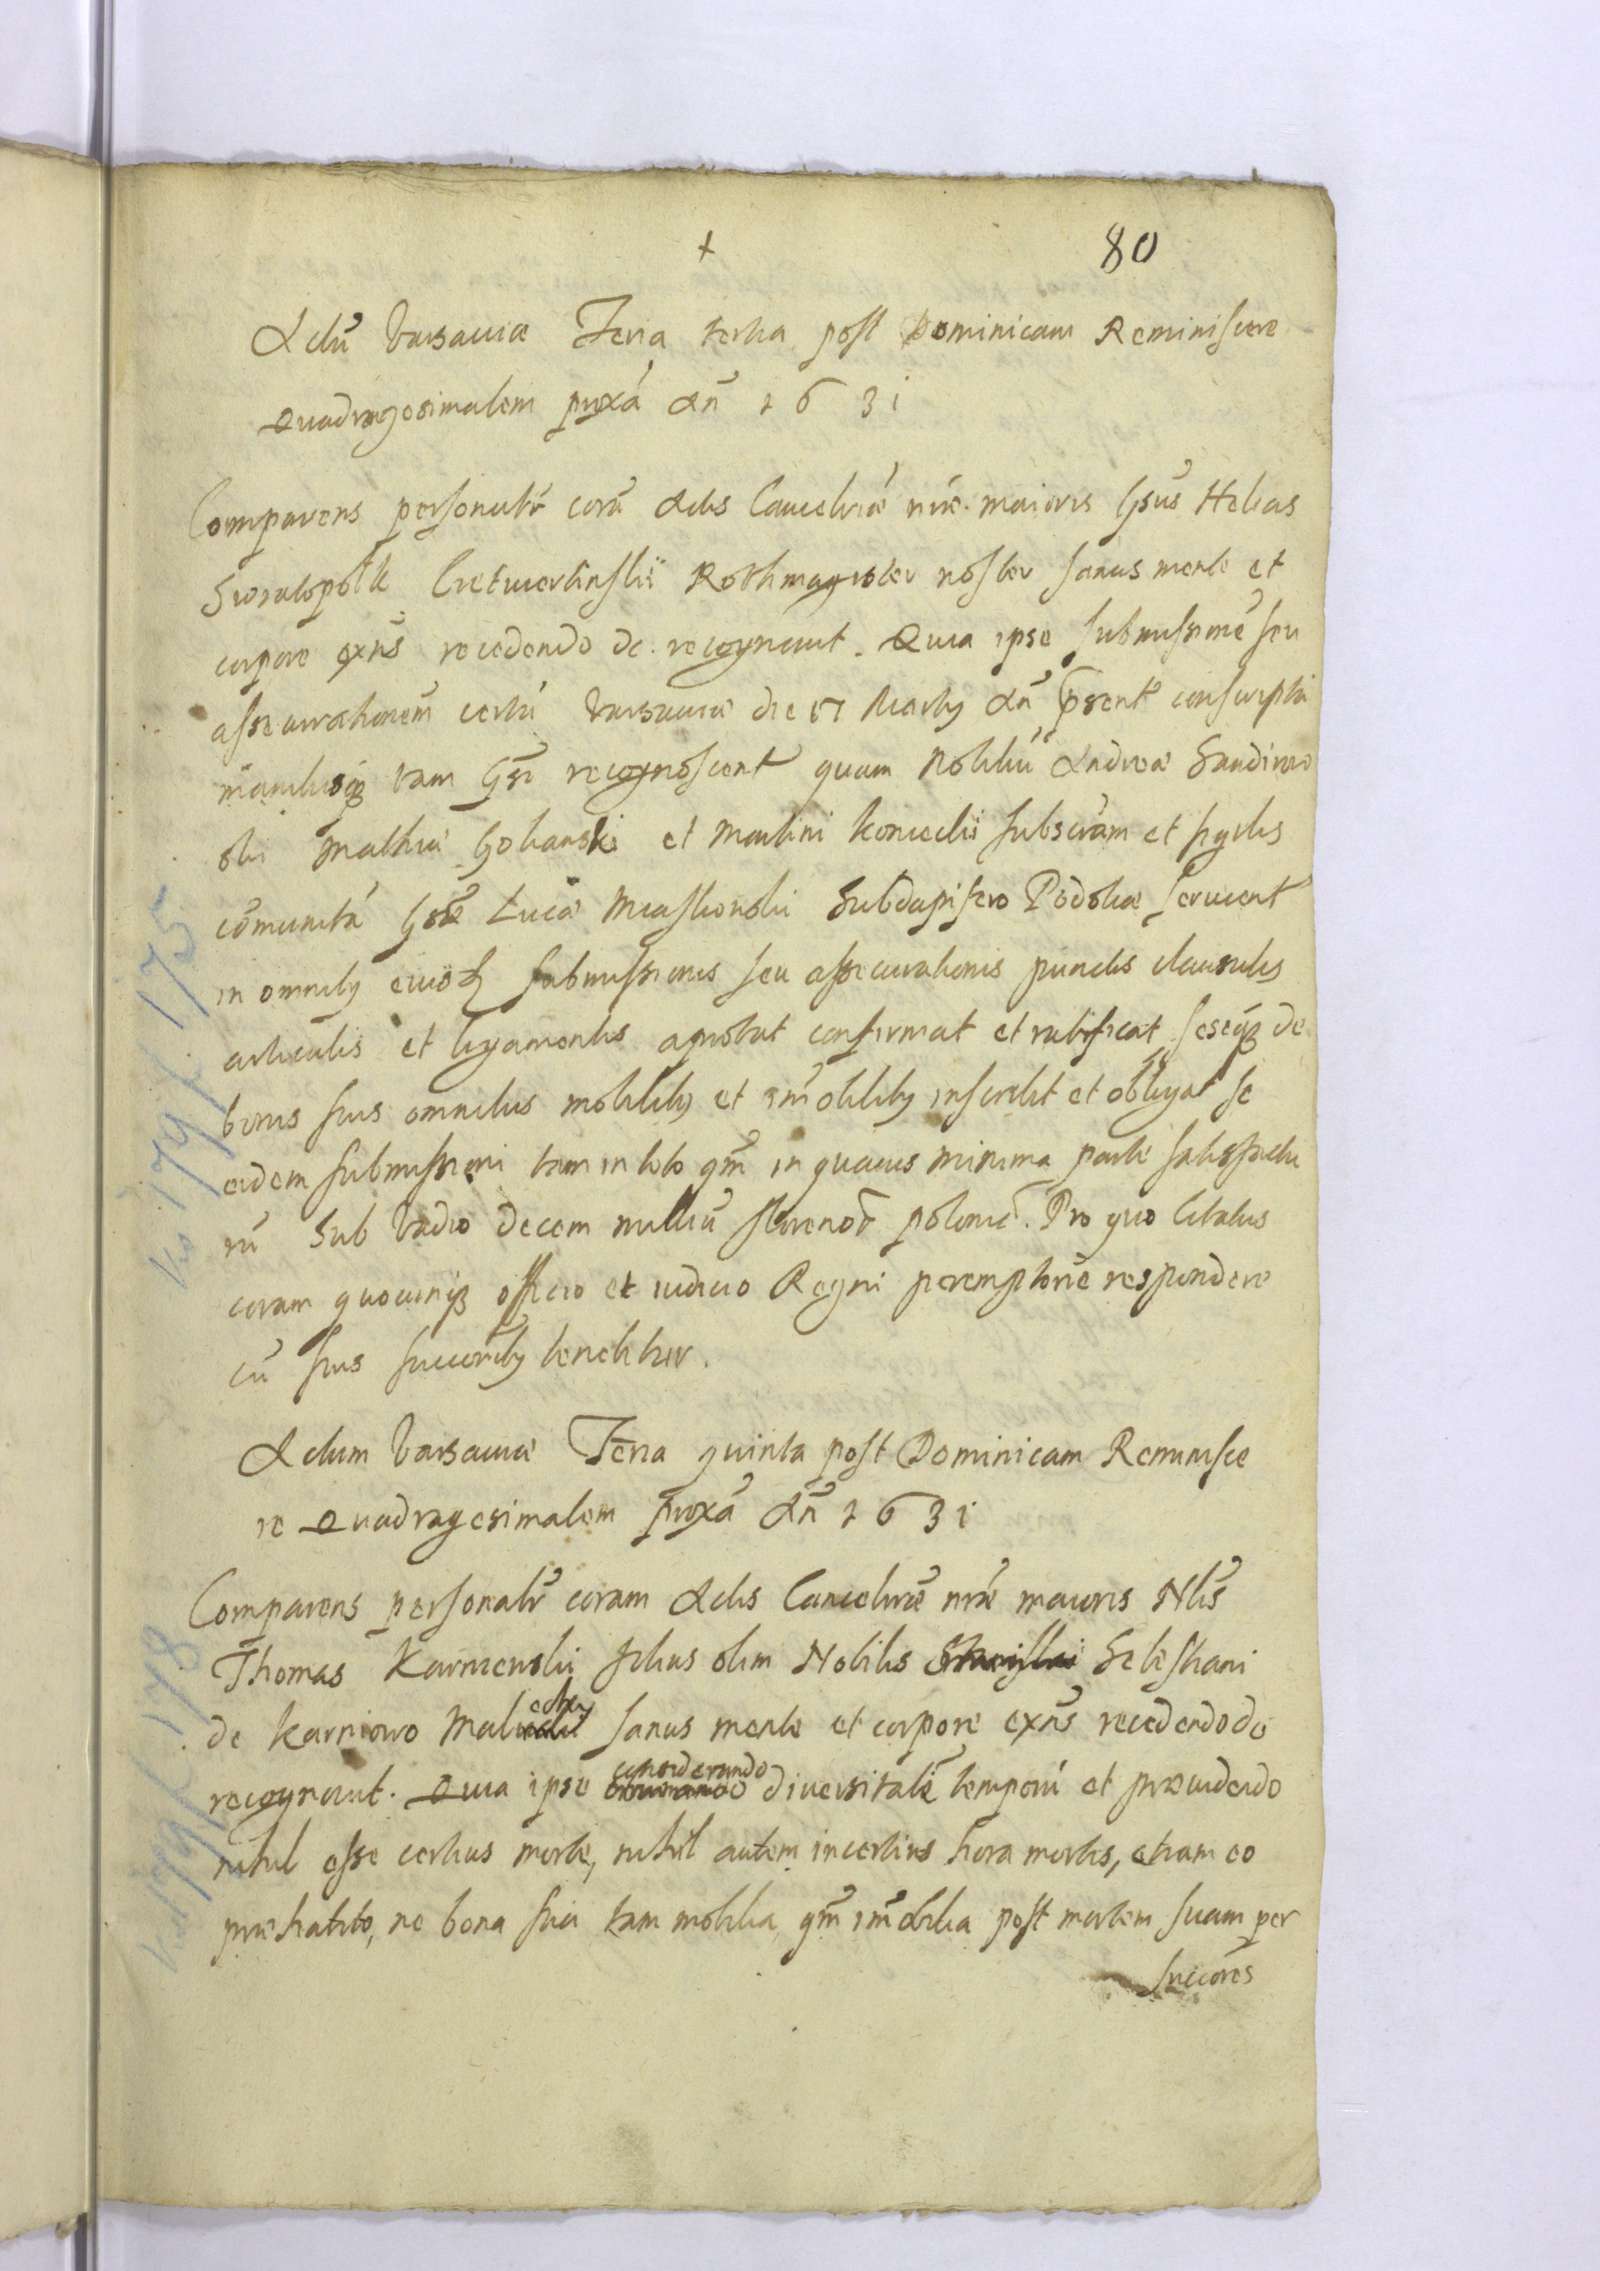 80
Actũ Varsaviæ Feria tertia post Dominicam Reminiscere
Quadragesimalem proxã Añ 1631
Comparens personalr corã Actis Cancelriæ nræ maioris Gsus Helias
Swiatopolk Czetwertinskii Rothmagister noster sanus mente et
corpore exñs recedendo de recognovit. Quia ipse submissionẽ seu
assecurationem certã Varsaviæ die 17 Martij Añ psent conscriptã
manibusq tam Gsi recognoscent quam Nobiliũ Andreæ
ski Mathiæ et Martini subscram et sigilis
comunitã Gso Lucæ Miaskowski Subdapifero Podoliæ servient
in omnibq eiusd submissionis seu assecurationis punctis clausulis
articulis et ligamentis aprobat confirmat et ratificat seseq de
bonis suis omnibus mobilibq et im̃obilibq inscribit et obligat se
eidem submissioni tam in toto qm̃ in quavis minima parte satisfactu
rũ sub vadio decem milliũ florenor polonic. Pro quo citatus
coram quocunq officio et iudicio Regni peremptorie respondere
cũ suis succoribq tenebitur.
Actum Varsaviæ Feria quinta post Dominicam Reminisce
re Quadragesimalem proxã Añ 1631
Comparens personalr coram Actis Cancelriæ nræ maioris Nlis
Thomas Karnienski filius olim Nobilis Sebestiani
de Karniowo sanus mente et corpore exñs recedendo de
recognovit. Quia ipse considerando diversitatẽ temporũ et prævidendo
nihil esse certius morte, nihil autem incertius hora mortis, etiam eo
præhabito, ne bona sua tam mobilia, qm̃ im̃obilia post mortem suam per
succores